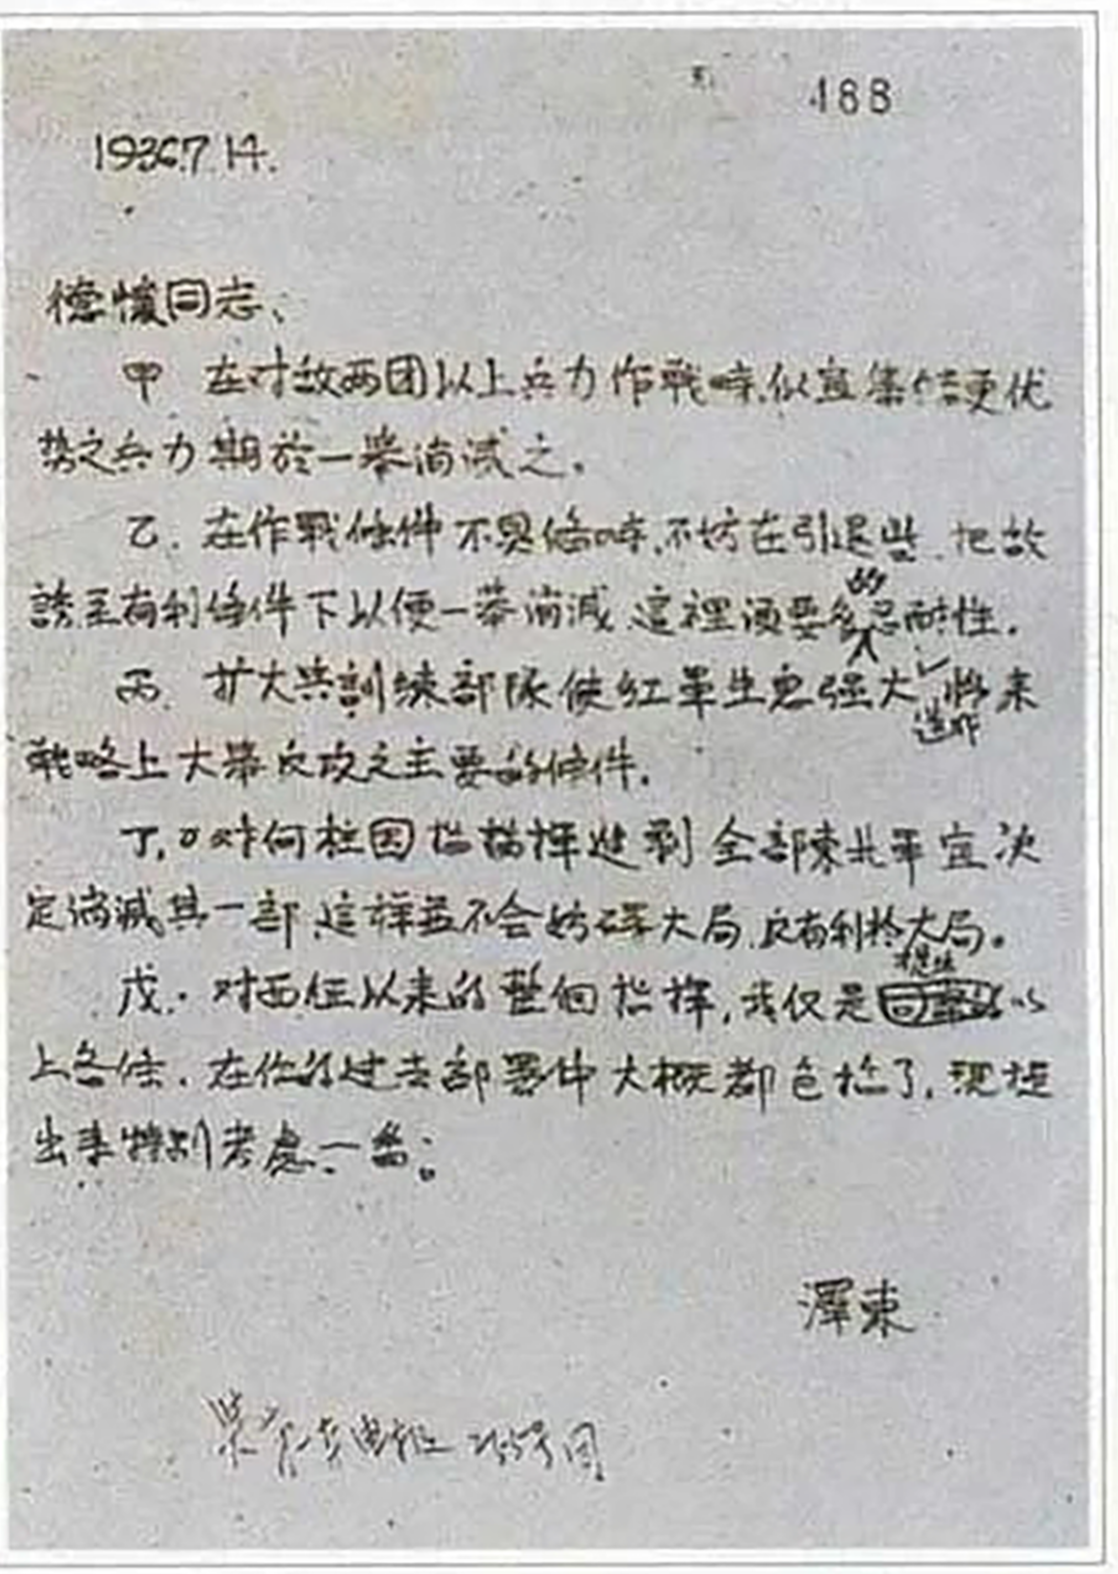 188
1936.7.14.
德懷同志、
甲 在对敌两团以上兵力作戰時,似宜集结更优
势之兵力期於一舉消滅之。
乙. 在作戰條件不具俻時,不妨在引退些,把敌
誘至有利條件下以便一舉消滅 這裡須要多的忍耐性.
丙. 扩大与訓練部隊使紅軍生息强大 造成將来
戰略上大舉反攻之主要的條件.
丁. 对何柱国指揮 全部東北軍宜决
定消滅其一部,這样並不会妨碍大局,反有利於大局。
戊. 对西征以来的整個指揮,我仅是提出以
上各條. 在你的过去部署中大概都包括了,现提
出来特别考慮一番。
澤東